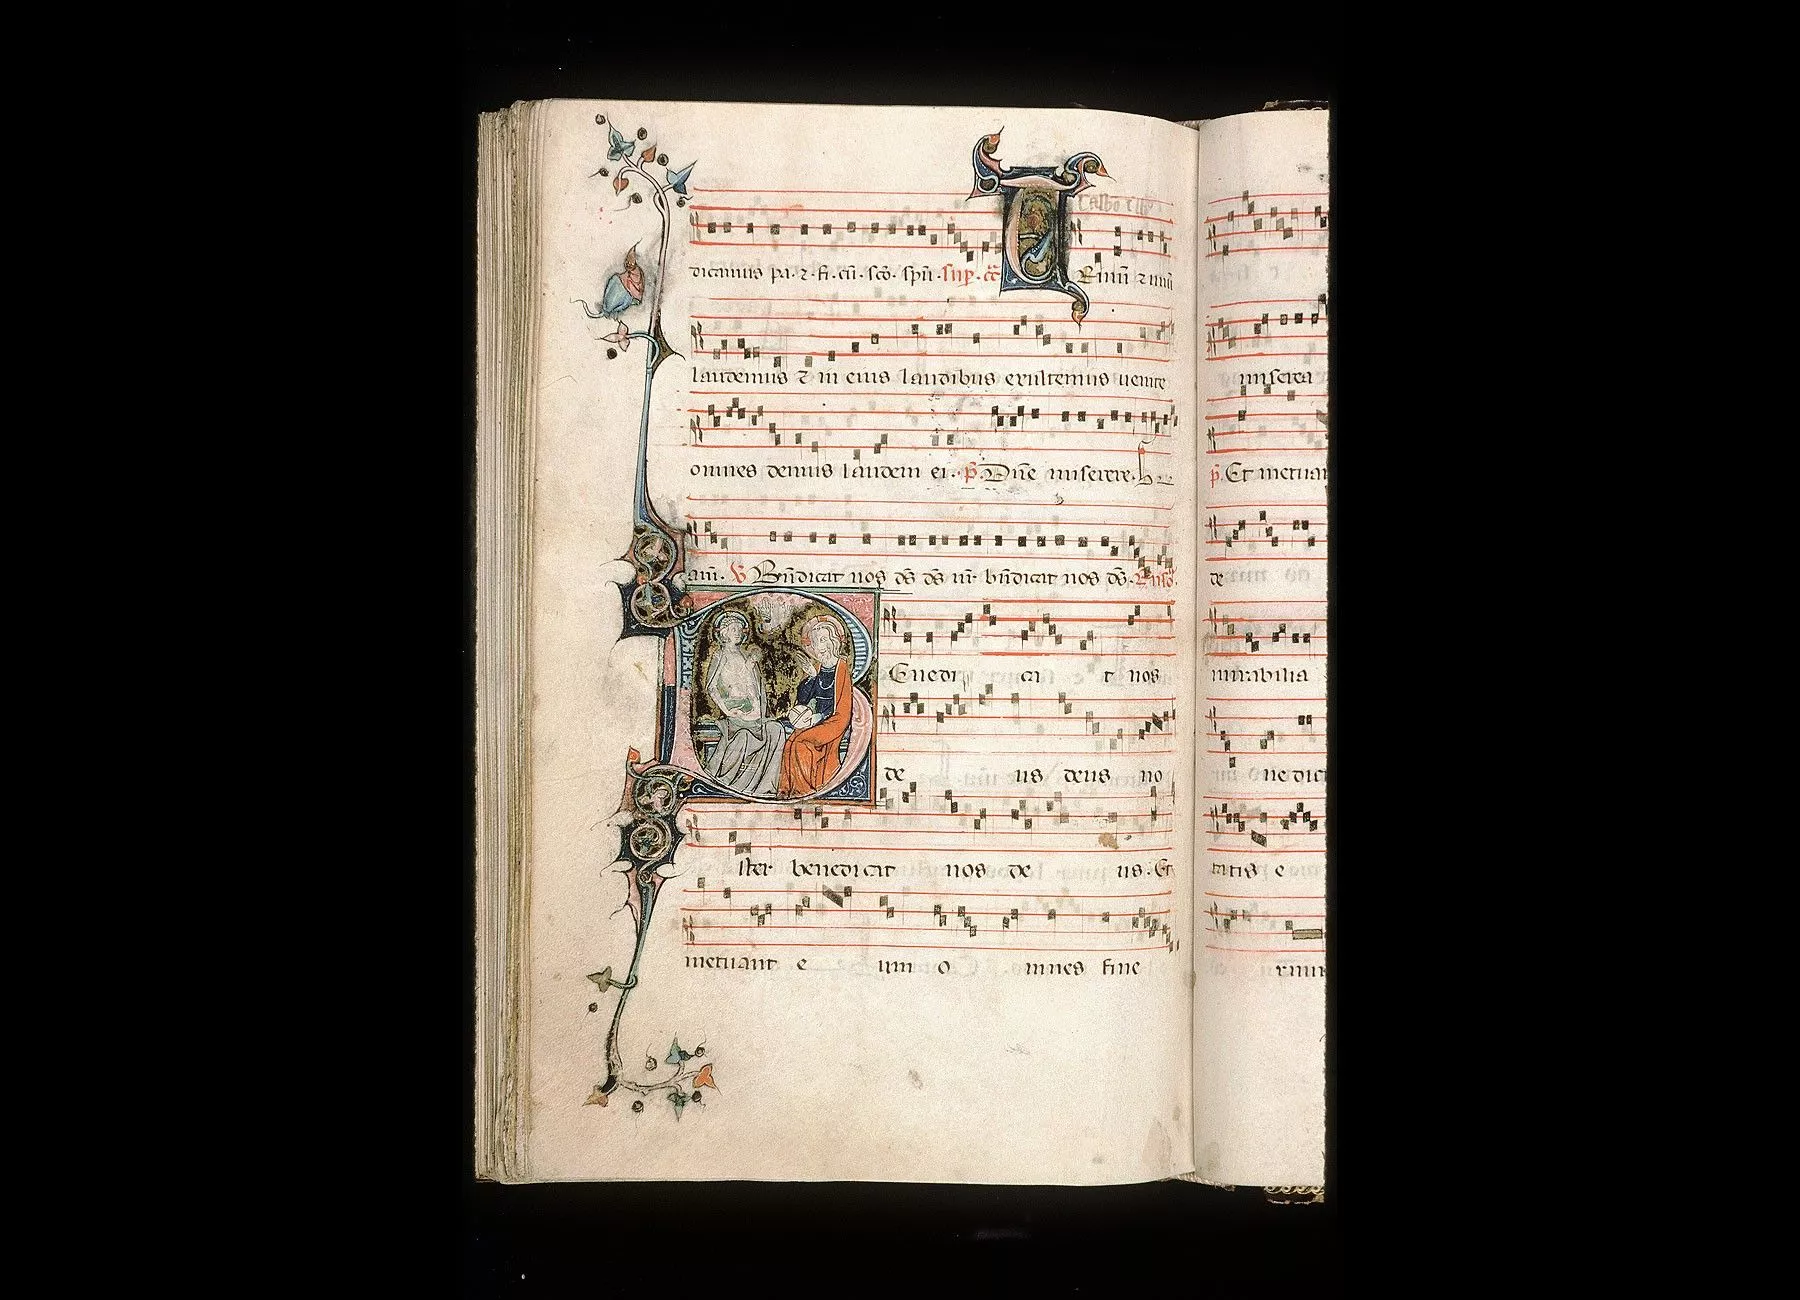 dicamus pa· ⁊ · fi · cū · sc̄o · spū · sup̱ · 
T Rinū ⁊ unū
laudemus ⁊ in eius laudibus exultemus uenite
omnes demus laudem ei · p̄ · Dn̄e miserere ·
am̄ · V Bn̄dicat nos dс̄ dс̄ nr̄ bn̄dicat nos dс̄ ·
B Enedi ca t nos
de us deus no
ster benedicat nos de us · Et
metuant e um o mnes fine
miserea
p̄ · Et metuan
de
mirabilia
nedict
tatis e